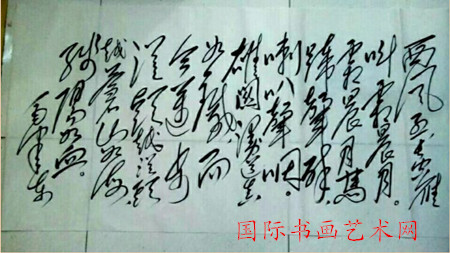 西风烈长空雁
叫霜晨月。
霜晨月馬
蹄聲碎
喇叭聲咽。
雄関漫道真
如鐵而
今迈步
從頭越從頭
越蒼山如海
残陽如血。
毛泽东
国际书画艺术网